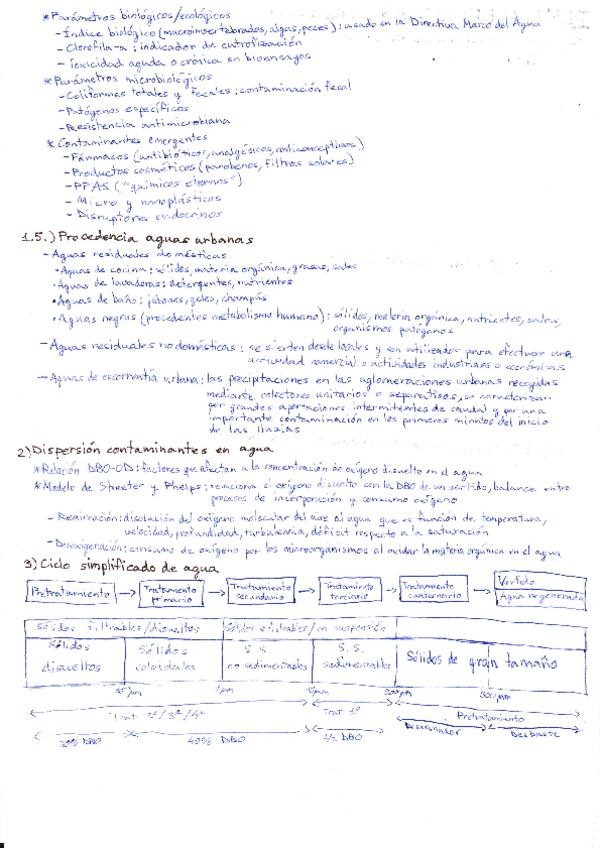 * Parámetros biológicos/ecológicos
- Índice biológico (macroinvertebrados, algas, peces): usado en la Directiva Marco del Agua
- Clorofila-a: indicador de eutrofización
- Toxicidad aguda o crónica en bioensayos
* Parámetros microbiológicos
- Coliformes totales y fecales: contaminación fecal
- Patógenos específicos
- Resistencia antimicrobiana
* Contaminantes emergentes
- Fármacos (antibióticos, analgésicos, anticonceptivos)
- Productos cosméticos (parabenos, filtros solares)
- PFAS ("químicos eternos")
- Micro y nanoplásticos
- Disruptores endocrinos
1.5.) Procedencia aguas urbanas
- Aguas residuales domésticas
• Aguas de cocina: sólidos, materia orgánica, grasas, sales
• Aguas de lavadoras: detergentes, nutrientes
• Aguas de baño: jabones, geles, champús
• Aguas negras (procedentes metabolismo humano): sólidos, materia orgánica, nutrientes, sales, organismos patógenos
- Aguas residuales no domésticas: se vierten desde locales y son utilizados para efectuar una
actividad comercial o actividades industriales o económicas
- Aguas de escorrentía urbana: las precipitaciones en las aglomeraciones urbanas recogidas
mediante colectores unitarios o separativos, se caracterizan
por grandes aportaciones intermitentes de caudal y por una
importante contaminación en los primeros minutos del inicio
de las lluvias
2) Dispersión contaminantes en agua
* Relación DBO-OD: factores que afectan a la concentración de oxígeno disuelto en el agua
* Modelo de Streeter y Phelps: relaciona el oxígeno disuelto con la DBO de un vertido, balance entre
procesos de incorporación y consumo oxígeno
- Reaireación: disolución del oxígeno molecular del aire al agua que es función de temperatura,
velocidad, profundidad, turbulencia, déficit respecto a la saturación
- Desoxigenación: consumo de oxígeno por los microorganismos al oxidar la materia orgánica en el agua
3) Ciclo simplificado de agua
Pretratamiento → Tratamiento primario → Tratamiento secundario → Tratamiento terciario → Tratamiento cuaternario → Vertido
Agua regenerada
Sólidos filtrables/disueltos Sólidos no filtrables/en suspensión
Sólidos disueltos Sólidos coloidales S.S. no sedimentables S.S. sedimentables Sólidos de gran tamaño
1µm 200µm
Trat 2º/3º/4º Trat 1º Pretratamiento
Desarenador Desbaste
30% DBO 40% DBO 1/3 DBO